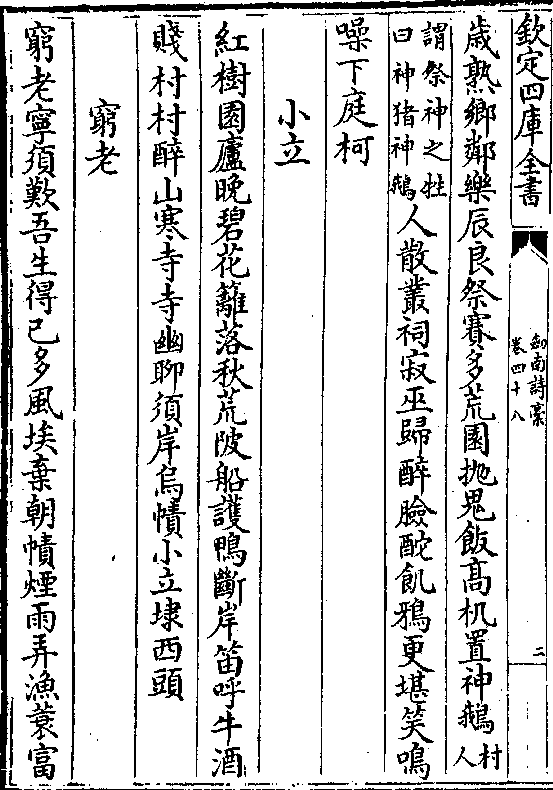 欽定四庫全書
劍南詩稾
卷四十八
二
歳熟鄉鄰樂辰良祭賽多荒園抛鬼飯髙机置神鵝村人
謂祭神之牲
曰神猪神鵝人散叢祠寂巫歸醉臉酡飢鴉更堪笑鳴
噪下庭柯
小立
紅樹園廬晚碧花籬落秋荒陂船護鴨斷岸笛呼牛酒
賤村村醉山寒寺寺幽聊須岸烏幘小立埭西頭
窮老
窮老寧須歎吾生得已多風埃棄朝幘煙雨弄漁蓑富